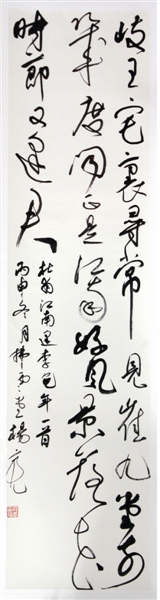 岐王宅裏尋常見崔九堂前
幾度聞正是江南好風景落花
時節又逢君
杜甫江南逢李龜年一首
丙申冬月楊